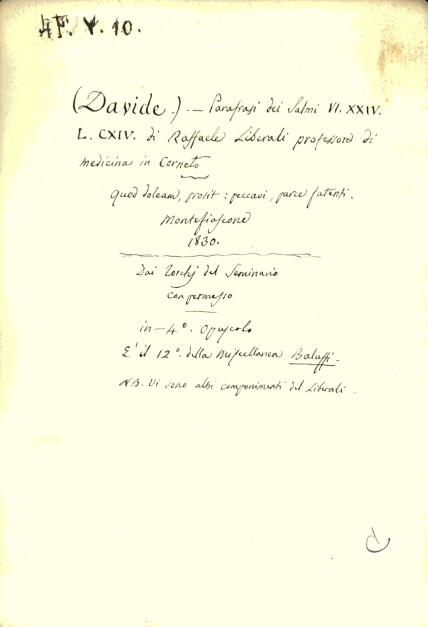 4F. V. 10.
(Davide.) — Parafrasi dei Salmi VI. XXIV.
L. CXIV. di Raffaele Liberali professore di
medicina in Corneto
Quod doleam, prosit: peccavi, parce fatenti.
Montefiascone
1830.
Dai Torchj del Seminario
con permesso
in-4°. Opuscolo
E' il 12°. della Miscellanea Baluffi.
N.B. Vi sono altri componimenti del Liberali.